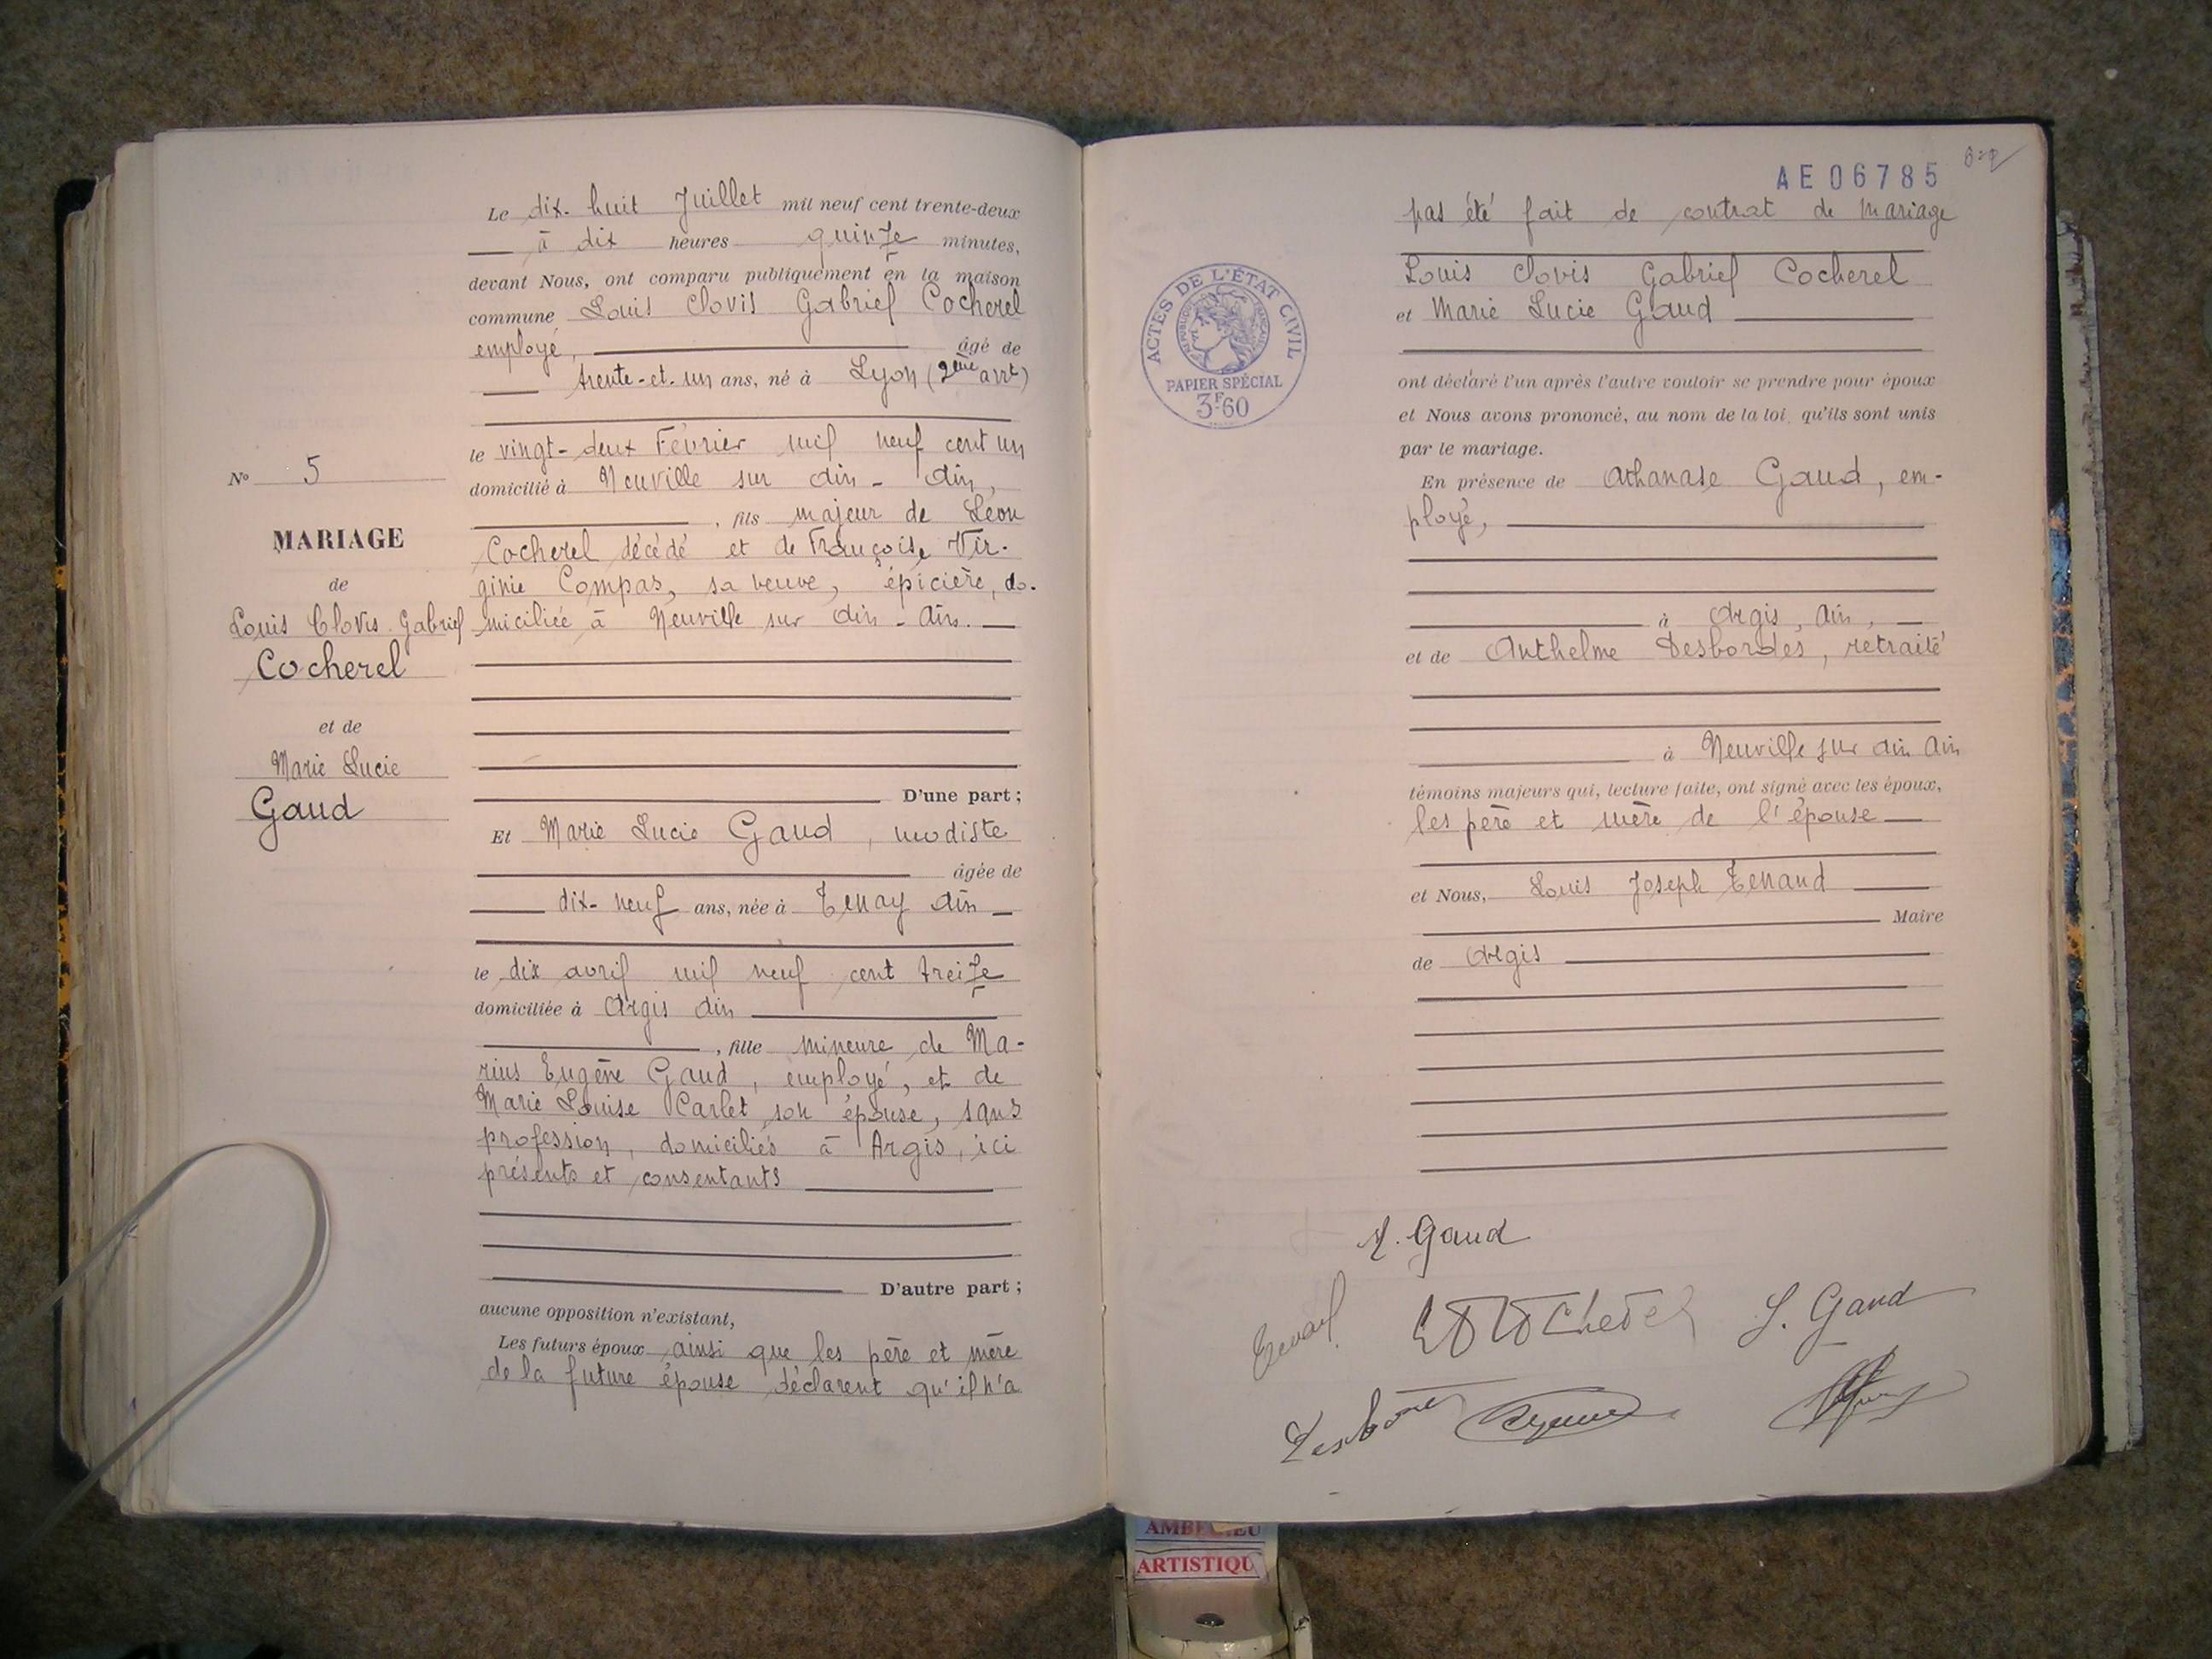 Le dix-huit Juillet mil neuf cent trente-deux
à dix heures quinze minutes,
devant Nous, ont comparu publiquement en la maison
commune Louis Clovis Gabriel Cocherel
employé, âgé de
trente-et-un ans, né à Lyon (2ème arrt)
le vingt-deux Février mil neuf cent un
domicilié à Neuville sur Ain - Ain,
, fils majeur de Léon
Cocherel décédé et de Françoise Vir-
ginie Compas, sa veuve, épicière, do-
miciliée à Neuville sur Ain - Ain.
D'une part ;
Et Marie Lucie Gaud, modiste
âgée de
dix-neuf ans, née à Tenay Ain
le dix avril mil neuf cent treize
domiciliée à Argis Ain
, fille mineure de Ma-
rius Eugène Gaud, employé, et de
Marie Louise Carlet son épouse, sans
profession, domiciliés à Argis, ici
présents et consentants
D'autre part ;
aucune opposition n'existant,
Les futurs époux ainsi que les père et mère
de la future épouse déclarent qu'il n'a
No 5
MARIAGE
de
Louis Clovis Gabriel
Cocherel
et de
Marie Lucie
Gaud
AE06785
pas été fait de contrat de mariage
Louis Clovis Gabriel Cocherel
et Marie Lucie Gaud
ont déclaré l'un après l'autre vouloir se prendre pour époux
et Nous avons prononcé, au nom de la loi, qu'ils sont unis
par le mariage.
En présence de Athanase Gaud, em-
ployé,
à Argis, Ain,
et de Anthelme Desbordes, retraité
à Neuville sur Ain Ain
témoins majeurs qui, lecture faite, ont signé avec les époux,
les père et mère de l'épouse
et Nous, Louis Joseph Tenand
Maire
de Argis
ACTES DE L'ÉTAT CIVIL
RÉPUBLIQUE FRANÇAISE
PAPIER SPÉCIAL
3F60
M. Gaud
L. Gaud
ARTISTIQU